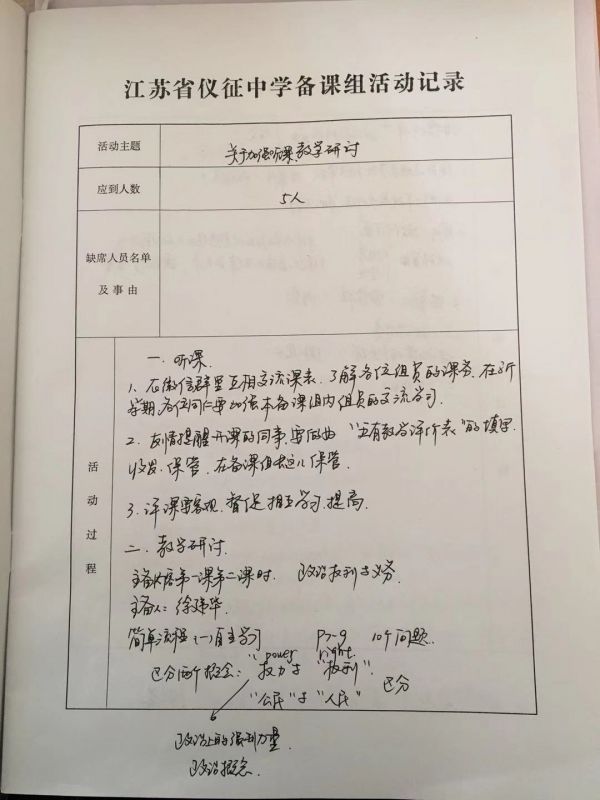 江苏省仪征中学备课组活动记录
活动主题 关于加强听课、教学研讨
应到人数 5人
缺席人员名单
及事由
活动过程
一. 听课.
1、在微信群里互相交流课表. 了解各位组员的课务. 在新
学期, 各位同仁要加强本备课组内组员的交流学习.
2. 友情提醒开课的同事, 要 "主有教学评价表" 的填写.
收发. 保管. 在备课组长这儿保管.
3. 评课要客观. 督促相互学习. 提高.
二. 教学研讨.
主备内容第一课第二课时. 政治权利与义务.
主备人: 徐 华
简单流程 (一) 自主学习 P7-9 10个问题.
power right.
区分两个概念: "权力与 "权利".
"公民" 与 "人民" 区分
政治上的强制力量.
政治概念.